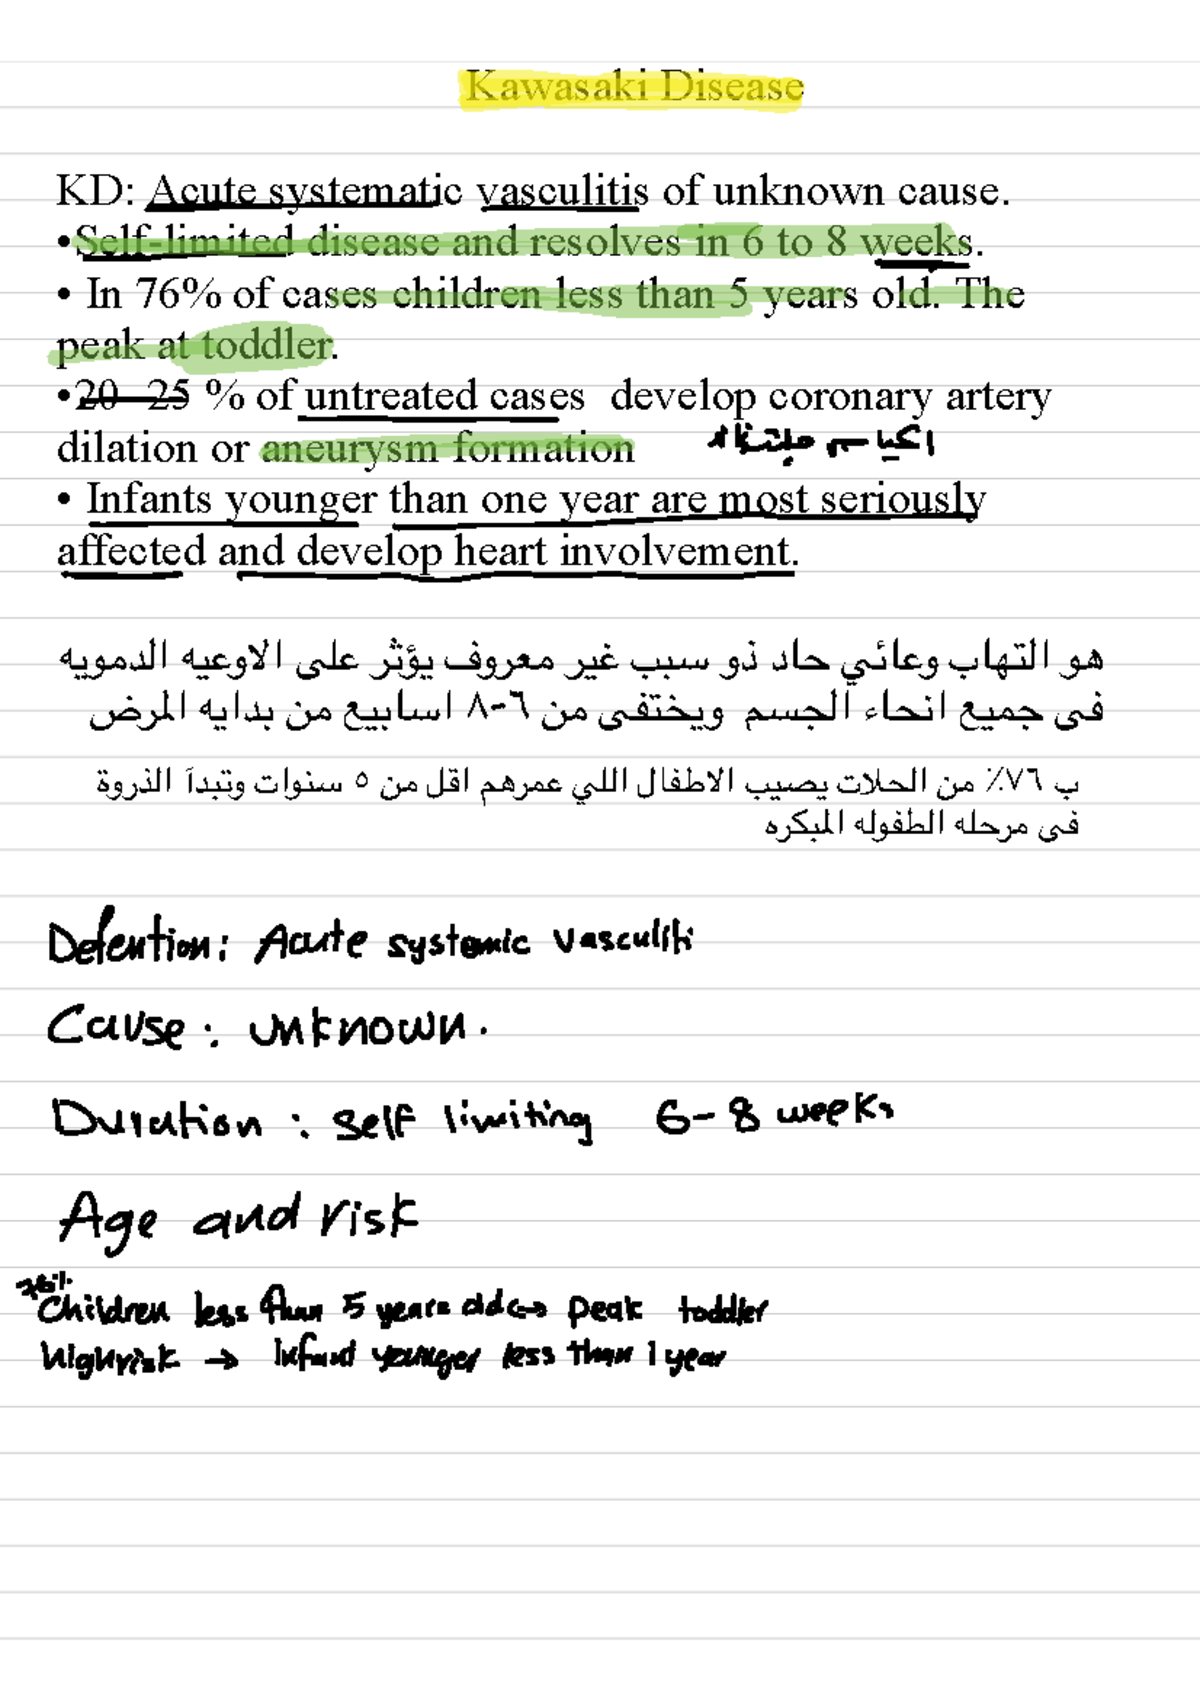 Kawasaki Disease
KD: Acute systematic vasculitis of unknown cause.
•Self-limited disease and resolves in 6 to 8 weeks.
• In 76% of cases children less than 5 years old. The
peak at toddler.
•20–25 % of untreated cases develop coronary artery
dilation or aneurysm formation
• Infants younger than one year are most seriously
affected and develop heart involvement.
هو التهاب وعائي حاد ذو سبب غير معروف يؤثر على الاوعيه الدمويه
في جميع انحاء الجسم ويختفى من ٦-٨ اسابيع من بدايه المرض
ب ٧٦٪ من الحلات يصيب الاطفال اللي عمرهم اقل من ٥ سنوات وتبدآ الذروة
في مرحله الطفوله المبكره
Defention: Acute systemic vasculiti
Cause: unknown.
Duration: self limiting 6-8 weeks
Age and risk
76%
Children less than 5 years old ↔ peak toddler
high risk → infant younger less than 1 year